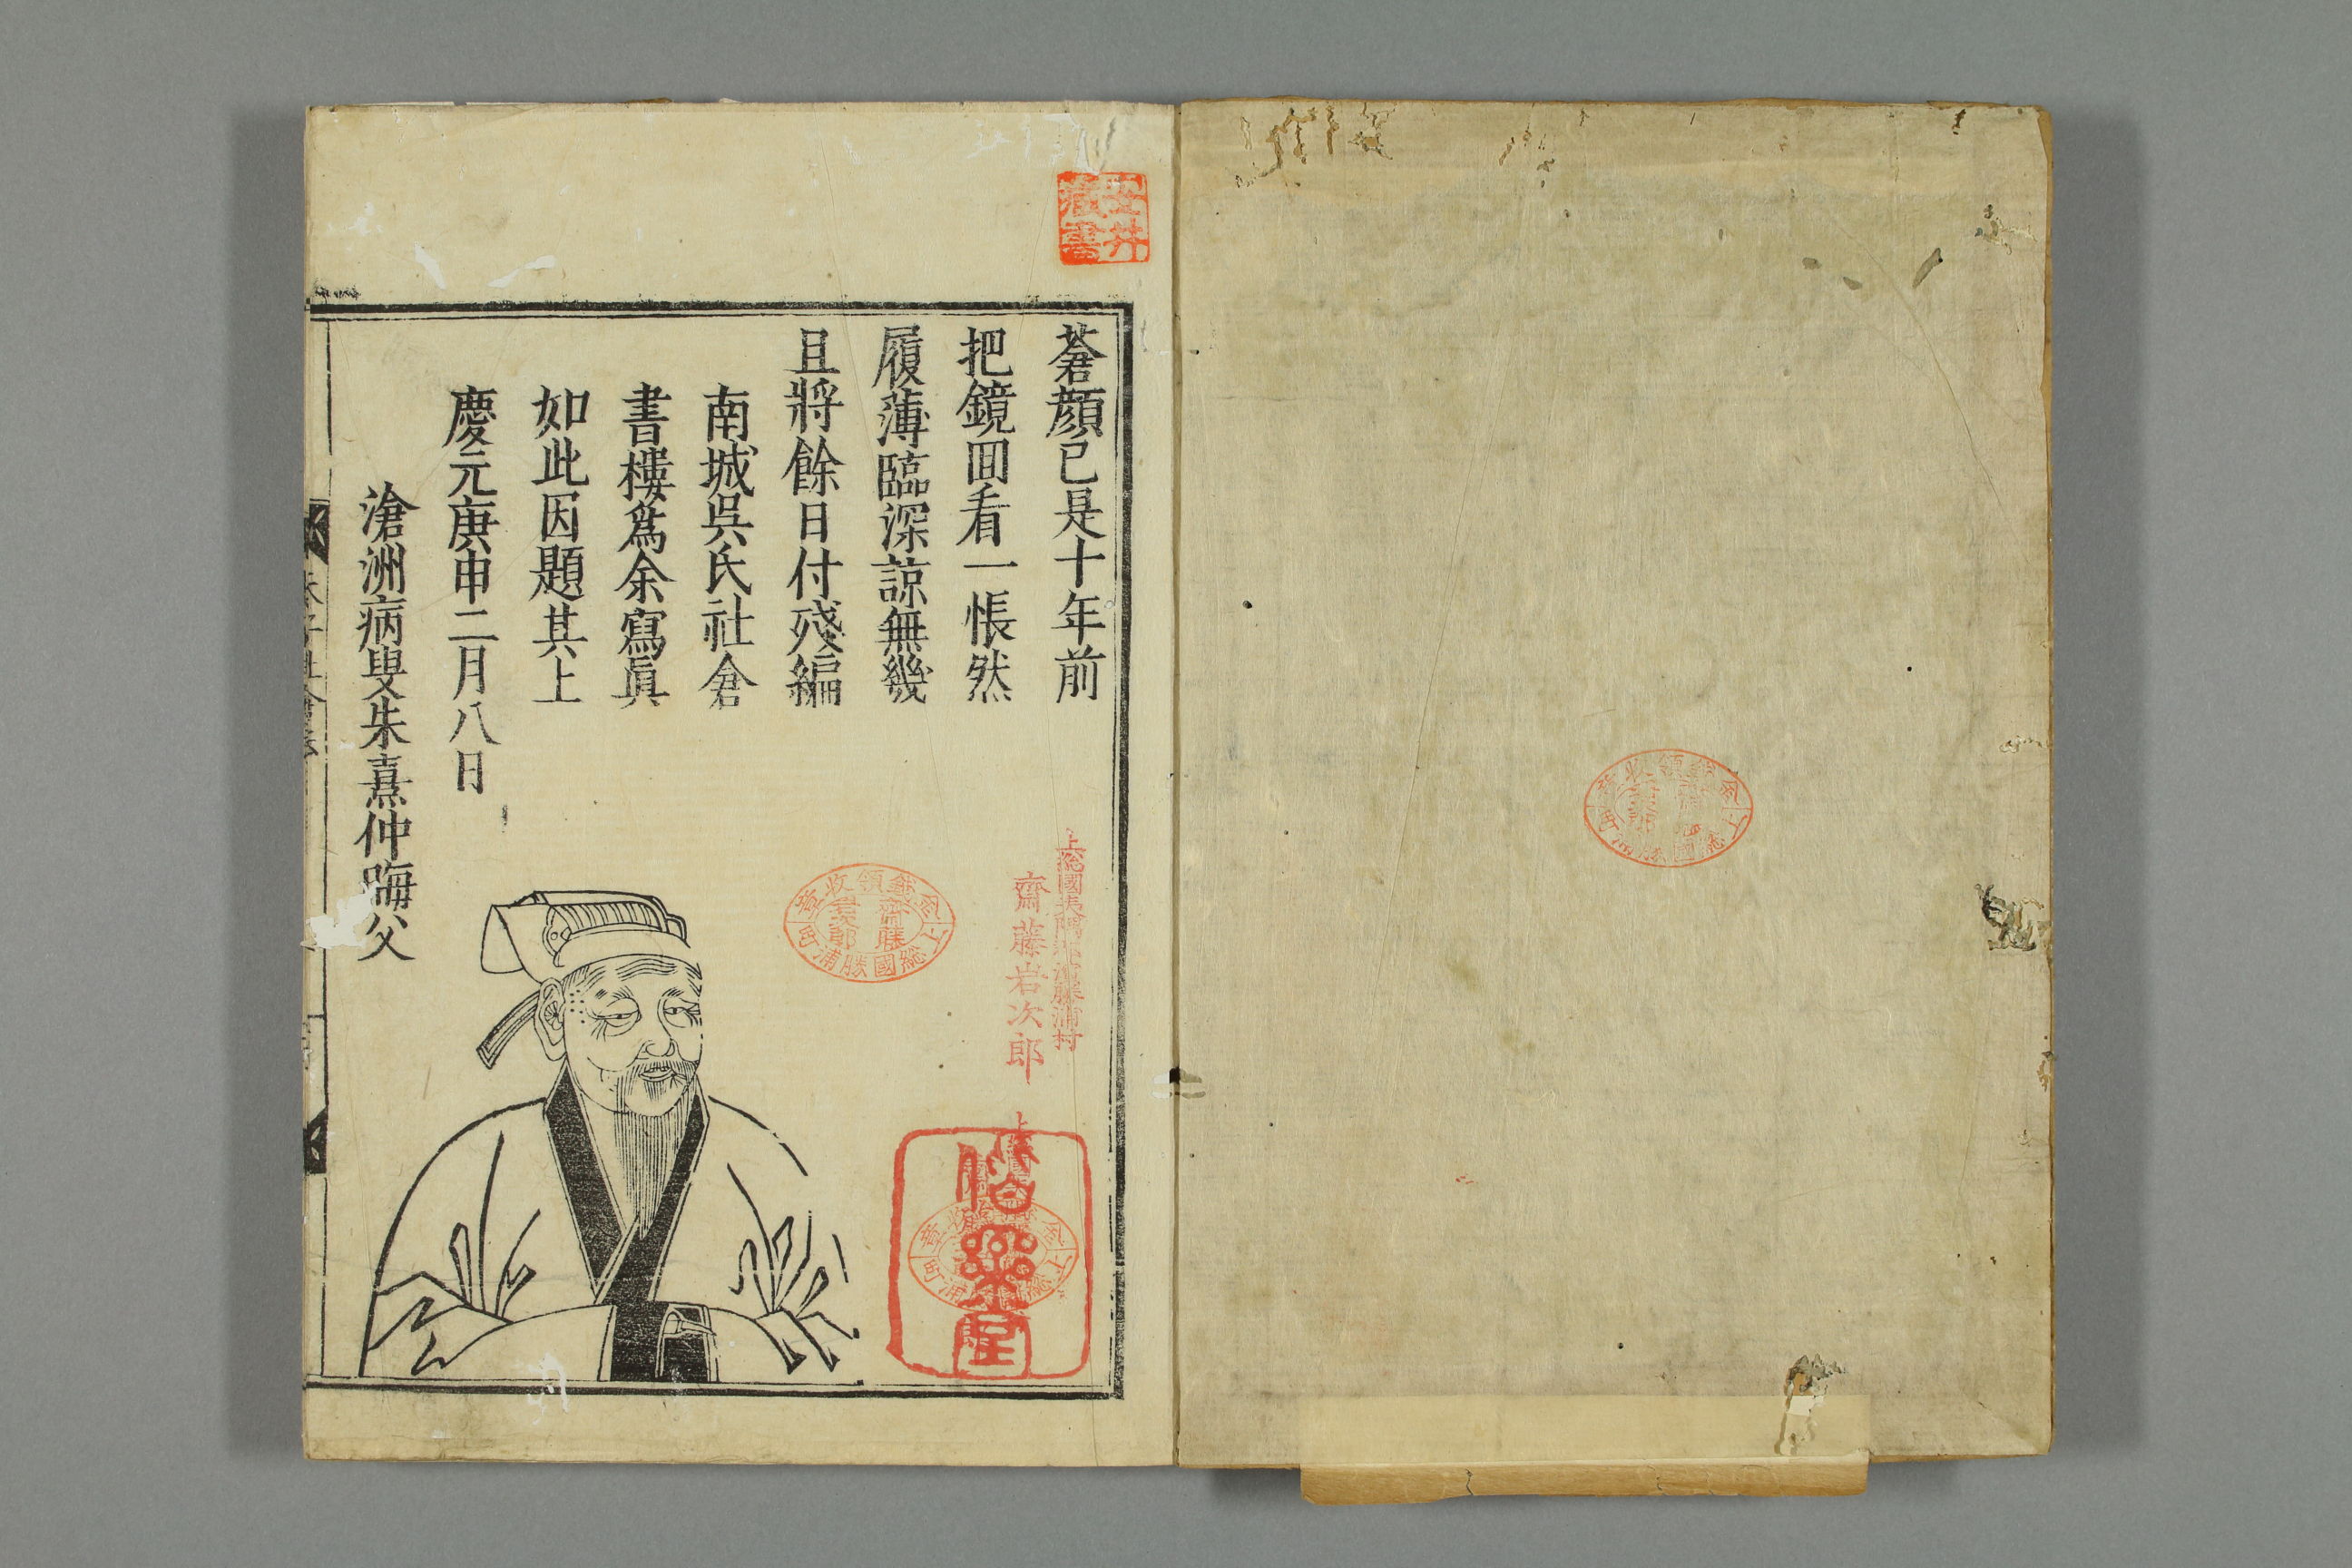 蒼顔已是十年前
把鏡囬看一悵然
履薄臨深諒無幾
且將餘日付殘編
南城呉氏社倉
書樓爲余寫眞
如此因題其上
慶元庚申二月八日
滄洲病叟朱熹仲晦父
朱子社倉
安井
藏書
齋藤岩次郎
怡樂堂